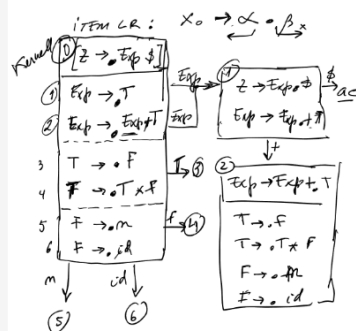 iTEM LR : X₀ → α • β
Kernel
0
[Z → . Exp $]
① Exp → . T
② Exp → . Exp + T
3 T → . F
4 F → . T * f
5 F → . n
6 F → . id
Exp
Exp
T ③
f ④
n id
⑤ ⑥
1
Z → Exp . $
Exp → Exp . + T
$
ac
+
②
Exp → Exp + . T
T → . f
T → . T * F
F → . n
F → . id